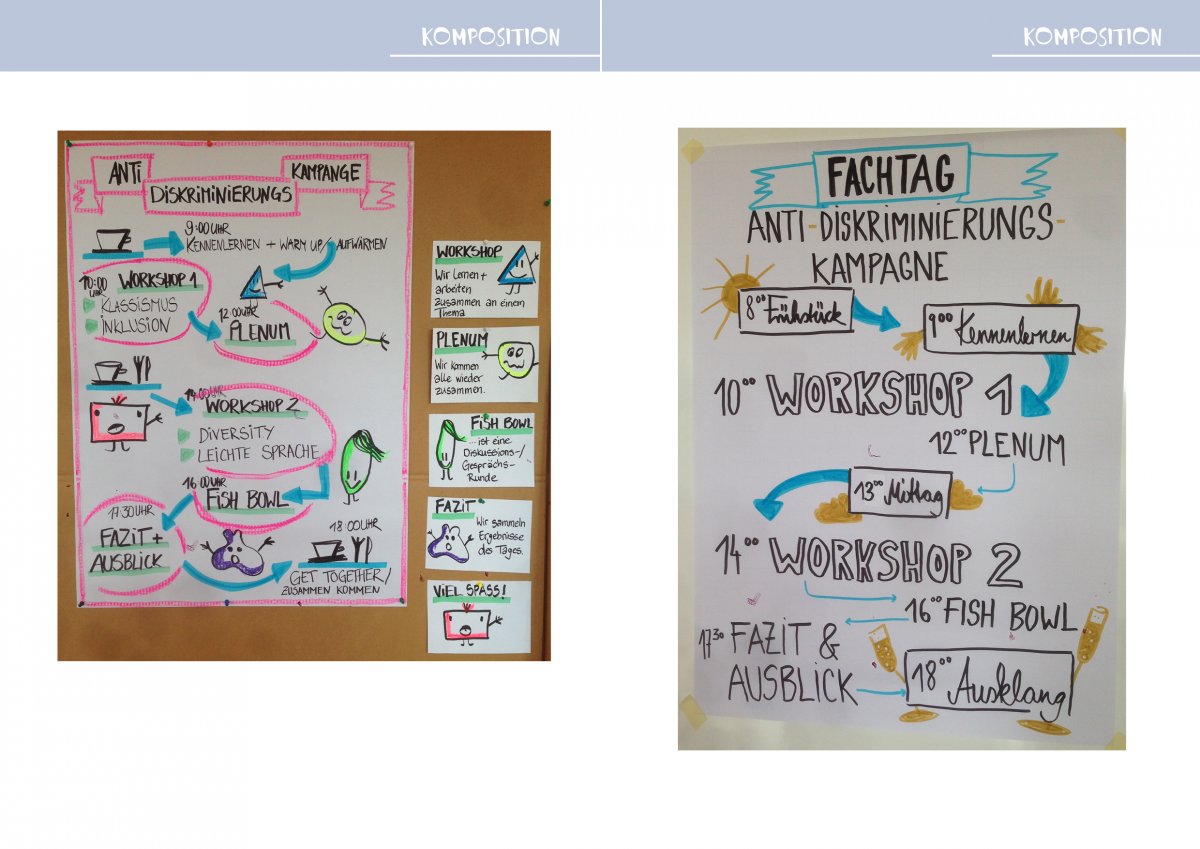 KOMPOSITION
ANTI
DISKRIMINIERUNGS
KAMPANGE
9:00 UHR
KENNENLERNEN + WARM UP / AUFWÄRMEN
10:00 UHR
WORKSHOP 1
KLASSISMUS
INKLUSION
12:00 UHR
PLENUM
14:00 UHR
WORKSHOP 2
DIVERSITY
LEICHTE SPRACHE
16:00 UHR
FISH BOWL
17:30 UHR
FAZIT +
AUSBLICK
18:00 UHR
GET TOGETHER /
ZUSAMMEN KOMMEN
WORKSHOP
Wir lernen +
arbeiten
zusammen an einem
Thema
PLENUM
Wir kommen
alle wieder
zusammen.
FISH BOWL
... ist eine
Diskussions-/
Gesprächs-
Runde
FAZIT
Wir sammeln
Ergebnisse
des Tages.
VIEL SPASS!
KOMPOSITION
FACHTAG
ANTI-DISKRIMINIERUNGS-
KAMPAGNE
8⁰⁰ Frühstück
9⁰⁰ Kennenlernen
10⁰⁰ WORKSHOP 1
12⁰⁰ PLENUM
13⁰⁰ Mittag
14⁰⁰ WORKSHOP 2
16⁰⁰ FISH BOWL
17³⁰ FAZIT &
AUSBLICK
18⁰⁰ Ausklang